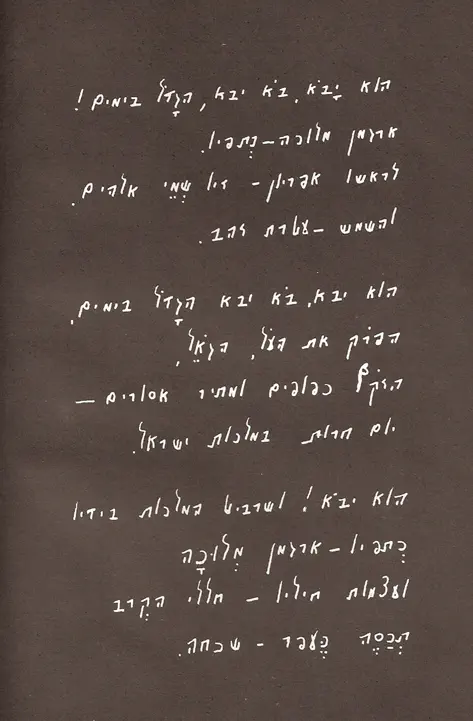 הוא יָבֹא, בֹּא יבא, הגָדֹל בימים!
ארגמן מלוכה – כְּתפיו.
לראשו אפריון – זיו שְׁמֵי אלהים.
והשמש – עטרת זהב.
הוא יבא, בֹּא יבא הגָדֹל בימים,
הפורק את העֹל, הגֹאֵל,
הזוקף כפופים ומתיר אסורים –
יום חרות במלכות ישראל.
הוא יבֹא! ושרביט המלכות בידיו
כְּתפיו – ארגמן מְלוּכָה
ועצמות חיליו – חללי הקְרב
תְכַסֶּה כֶּעפר – שכחה.